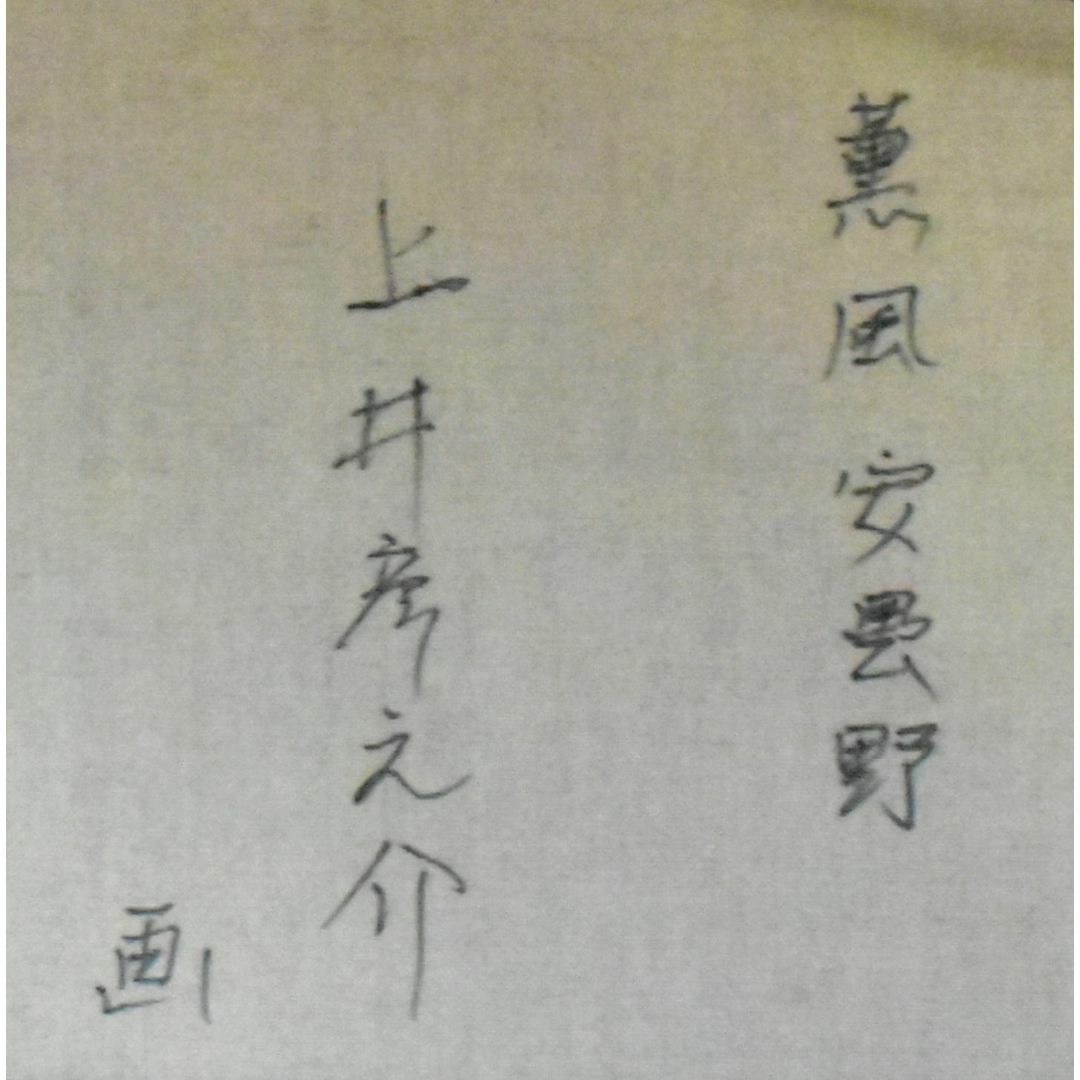 薫風 安曇野
上井彦之介
画